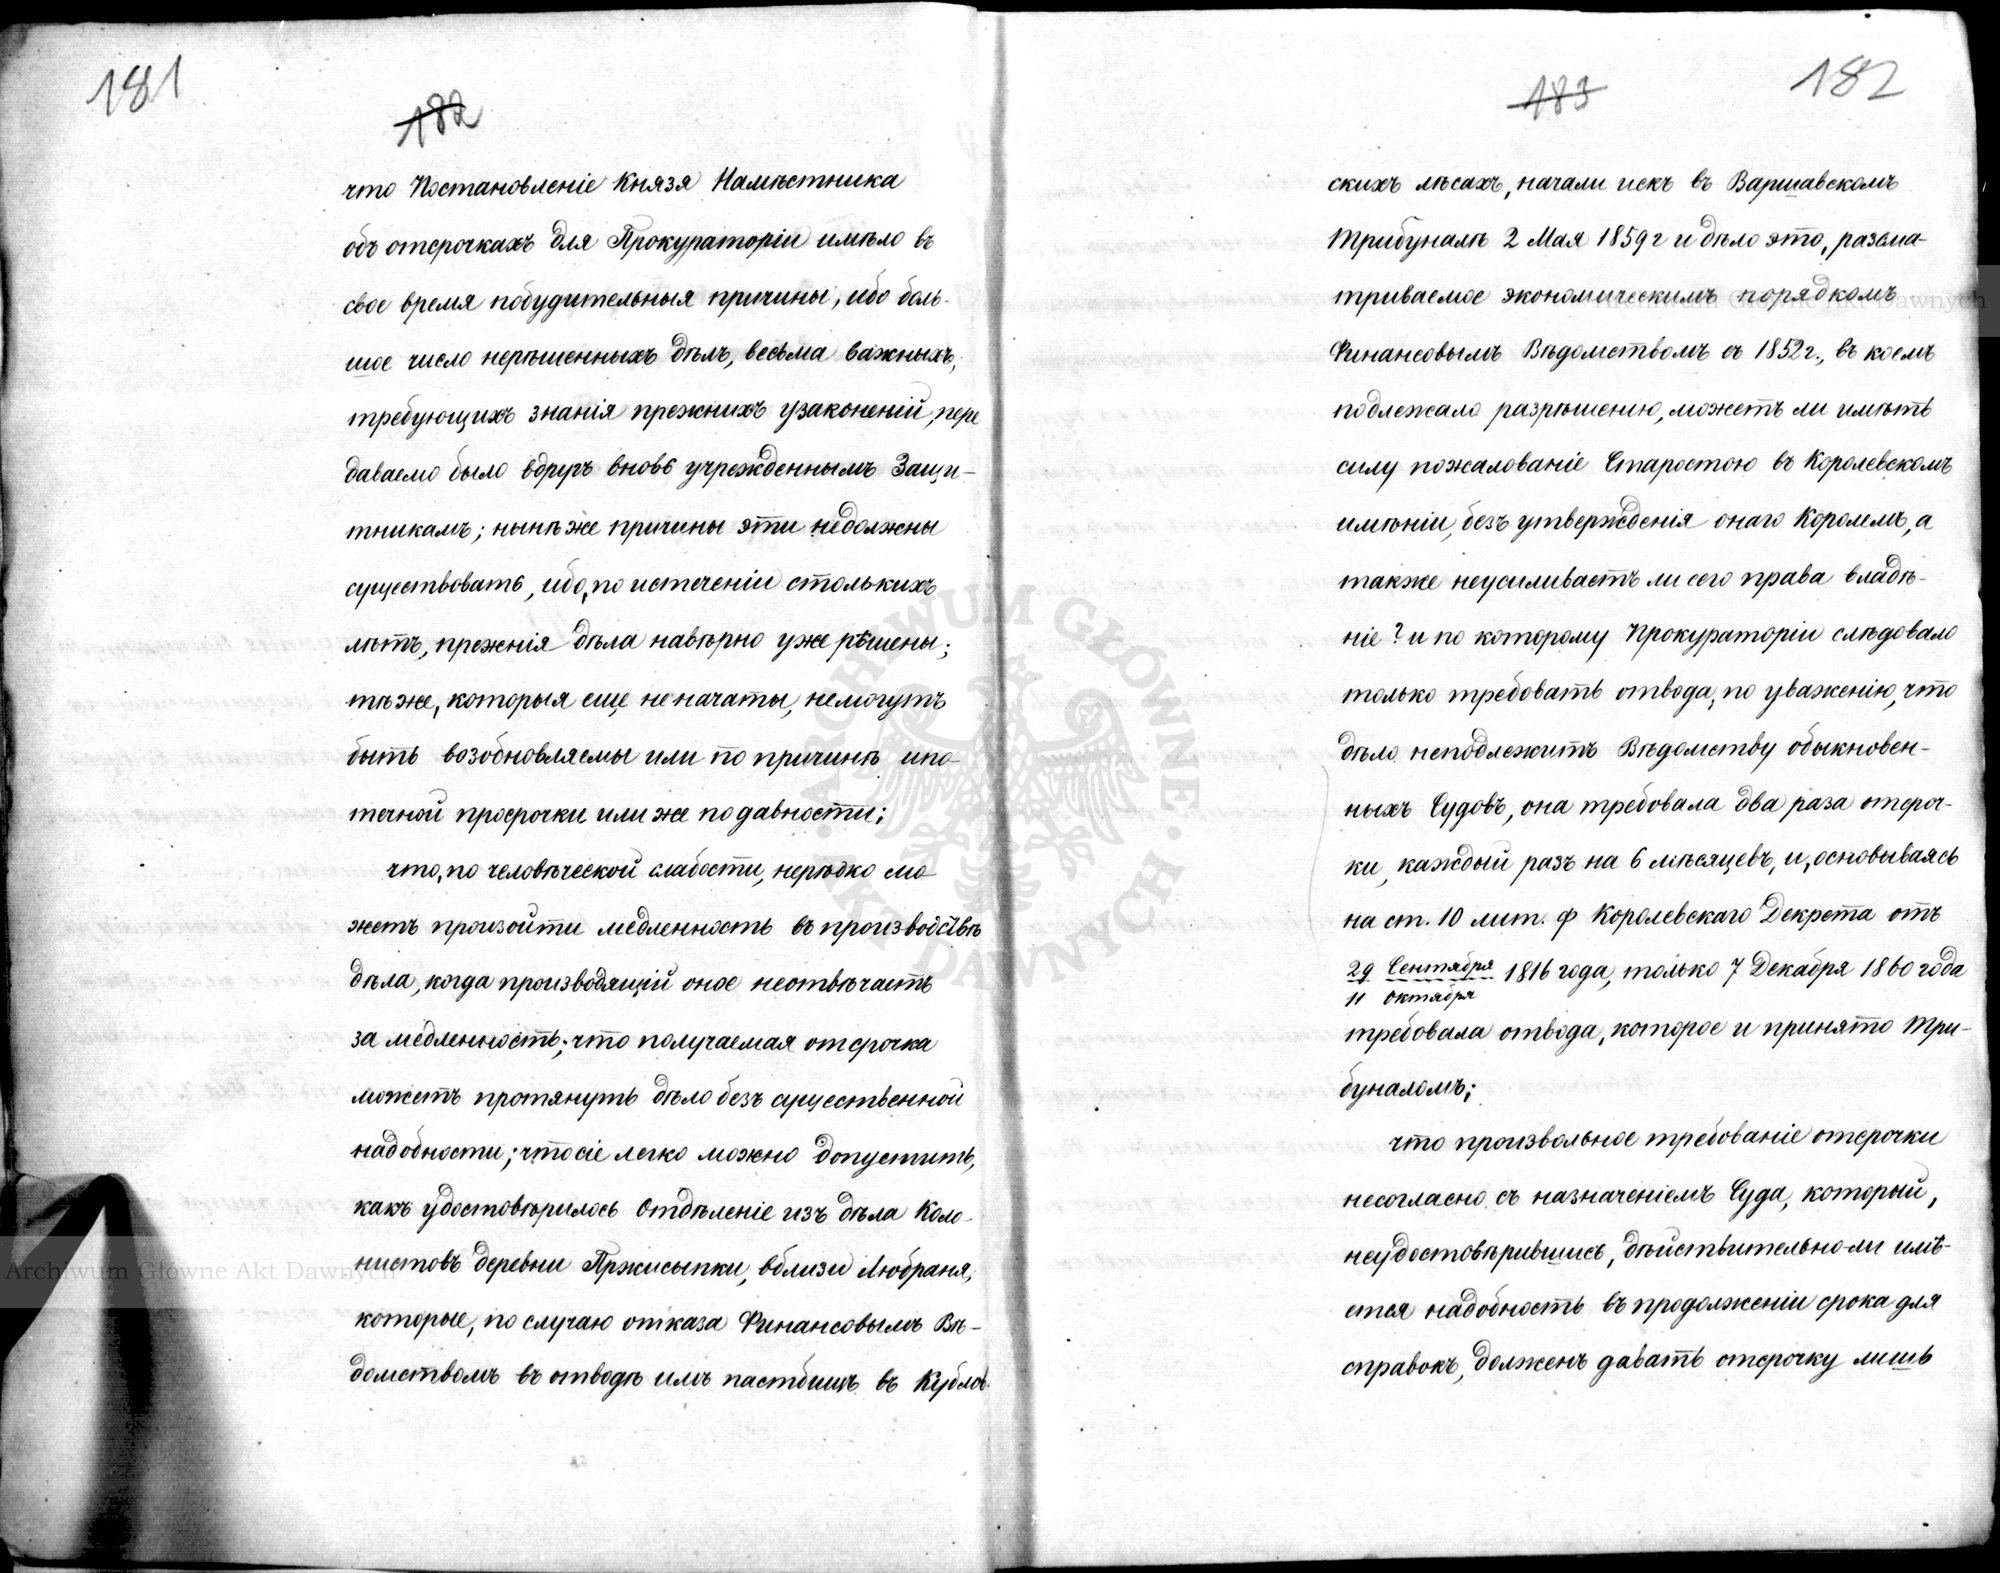 181
182
что Постановленіе Князя Намѣстника
объ отсрочкахъ для Прокураторіи имѣло въ
свое время побудительныя причины, ибо боль-
шое число нерѣшенныхъ дѣлъ, весьма важныхъ,
требующихъ знанія прежнихъ узаконеній, пере
даваемо было вдругъ вновь учрежденнымъ Защи-
тникамъ; нынѣ же причины эти недолжны
существовать, ибо, по истеченіи столькихъ
лѣтъ, прежнія дѣла навѣрно уже рѣшены;
тѣ же, которыя еще неначаты, немогутъ
быть возобновляемы или по причинѣ ипо-
течной просрочки или же по давности;
что, по человѣческой слабости, нерѣдко мо-
жетъ произойти медленность въ производствѣ
дѣла, когда производящій оное неотвѣчаетъ
за медленность; что получаемая отсрочка
можетъ протянуть дѣло безъ существенной
надобности; что сіе легко можно допустить,
какъ удостовѣрилось Отдѣленіе изъ дѣла Коло-
нистовъ деревни Пржисыпки, вблизи Любраня,
которые, по случаю отказа Финансовымъ Вѣ-
домствомъ въ отводѣ имъ пастбищъ въ
183
182
скихъ лѣсахъ, начали искъ въ Варшавскомъ
Трибуналѣ 2 Мая 1859 г и дѣло это, разсма-
триваемое экономическимъ порядкомъ
Финансовымъ Вѣдомствомъ съ 1852 г., въ коемъ
подлежало разрѣшенію, можетъ ли имѣть
силу пожалованіе Старостою въ Королевскомъ
имѣніи, безъ утвержденія онаго Королемъ, а
также неусиливаетъ ли сего права владѣ-
ніе? и по которому Прокураторіи слѣдовало
только требовать отвода, по уваженію, что
дѣло неподлежитъ Вѣдомству обыкновен-
ныхъ Судовъ, она требовала два раза отсроч-
ки, каждый разъ на 6 мѣсяцевъ, и, основываясь
на ст. 10 лит. ф Королевскаго Декрета отъ
29 Сентября 1816 года, только 7 Декабря 1860 года
11 Октября
требовала отвода, которое и принято Три-
буналомъ;
что произвольное требованіе отсрочки
несогласно съ назначеніемъ Суда, который,
неудостовѣрившись, дѣйствительно-ли имѣ-
ется надобность въ продолженіи срока для
справокъ, долженъ давать отсрочку лишь
Archiwum Główne Akt Dawnych
Archiwum Główne Akt Dawnych
ARCHIWUM GŁÓWNE AKT DAWNYCH